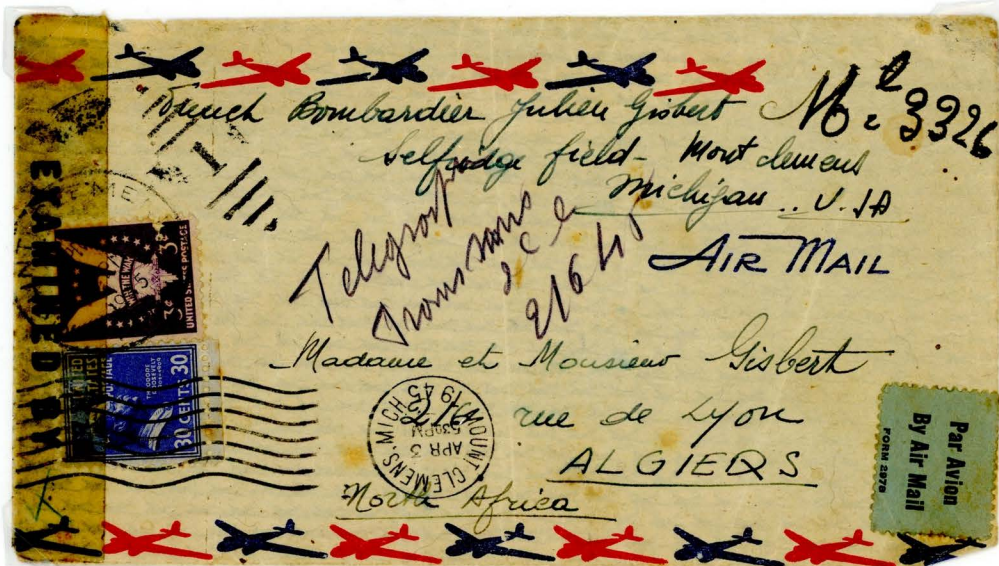 French Bombardier Julien Gisbert
Selfridge field - Mont Clemens
Michigan .. U.SA
3326
AIR MAIL
Telegraph
2/6/45
Madame et Monsieur Gisbert
rue de Lyon
ALGIERS
North Africa
EXAMINED BY
WIN THE WAR
3¢ 3¢
UNITED STATES POSTAGE
UNITED STATES POSTAGE
THEODORE ROOSEVELT
30 CENTS 30
MOUNT CLEMENS, MICH
APR 3
530PM
1945
Par Avion
By Air Mail
FORM 2978